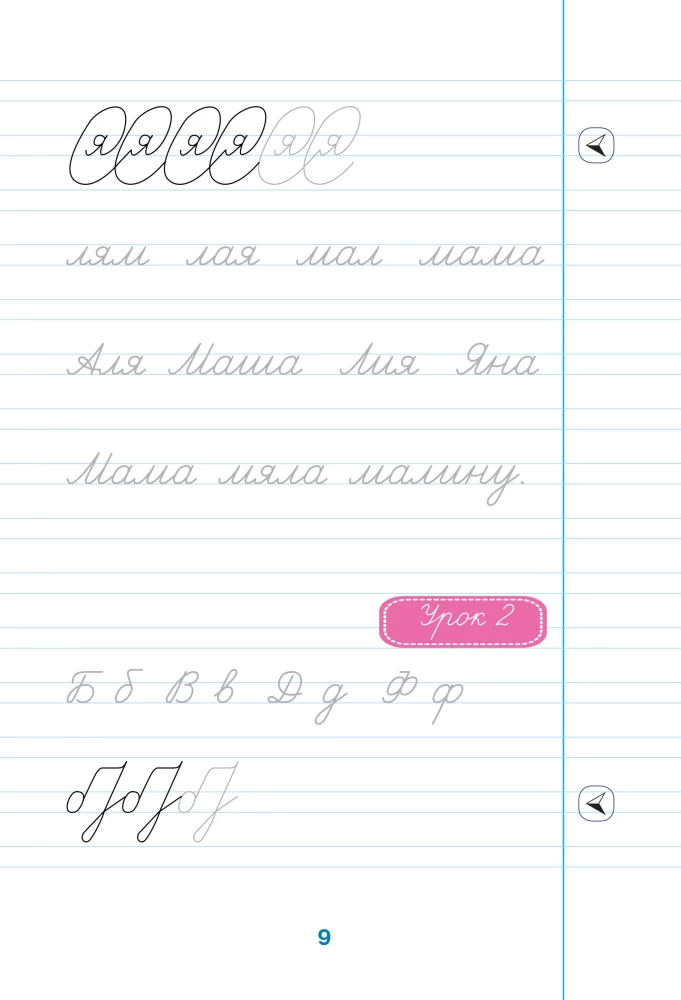 я я я я я я
лям лая мал мама
Аля Маша Лия Яна
Мама мяла малину.
Урок 2
Б б В в Д д Ф ф
б б б
9